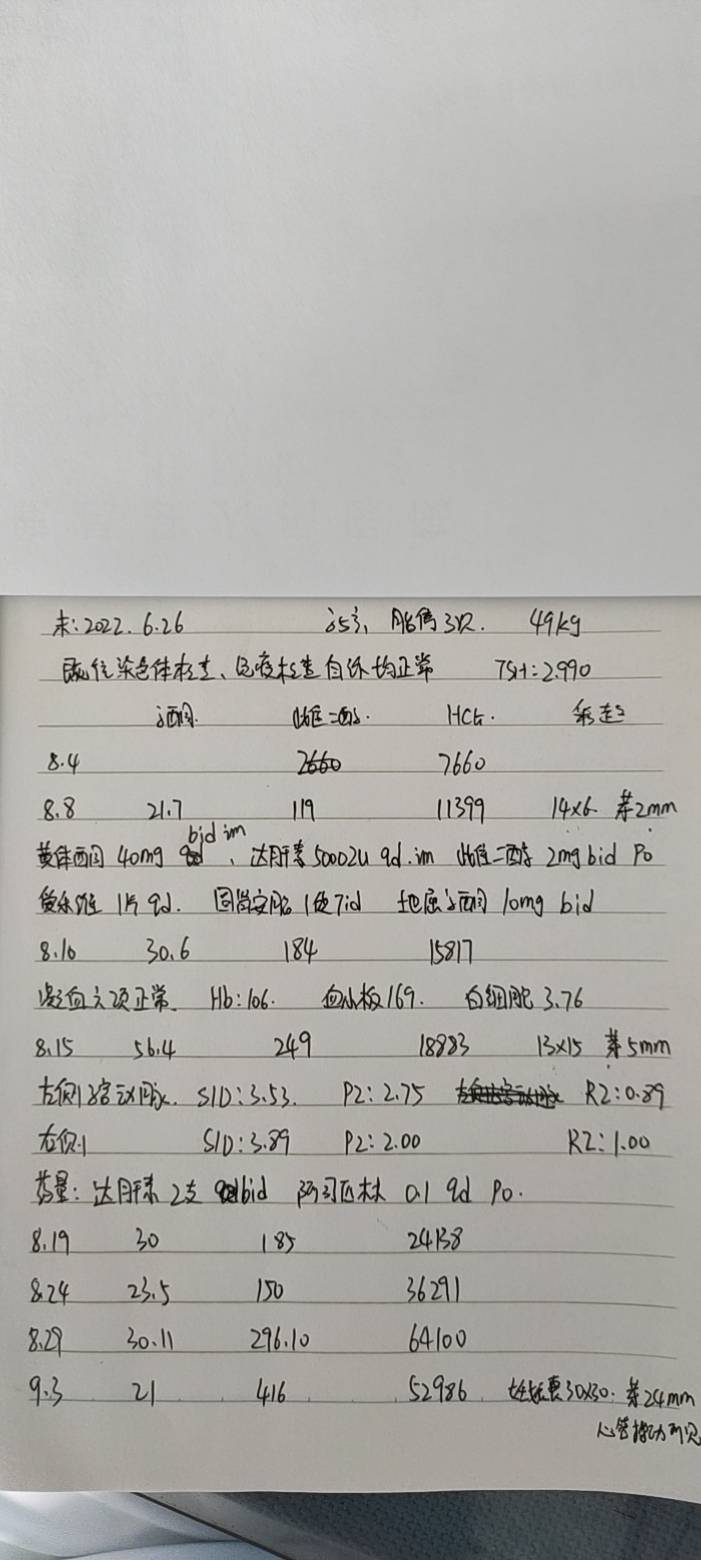 末:2022.6.26 胎停3次. 49kg
既往染色体检查、免疫检查自诉均正常 TSH:2.990
酮. 雌二醇. HCG. 彩超
8.4 2660 7660
8.8 21.7 119 11399 14×6 芽2mm
黄体酮 40mg bid im、达肝素5000Zu qd.im 雌二醇 2mg bid Po
1片qd. 固肾安胎1包Tid 地屈孕酮 10mg bid
8.10 30.6 184 15817
凝血六项正常 Hb:106. 血小板169. 白细胞3.76
8.15 56.4 249 18883 13×15 芽5mm
左侧子宫动脉. S/D:3.53. PI:2.75 RI:0.89
右侧 S/D:3.89 PI:2.00 RI:1.00
药量:达肝素2支 bid 阿司匹林 0.1 qd Po.
8.19 30 185 24138
8.24 23.5 150 36291
8.29 30.11 296.10 64100
9.3 21 416 52986 妊娠囊30×30. 芽24mm
心管搏动可见